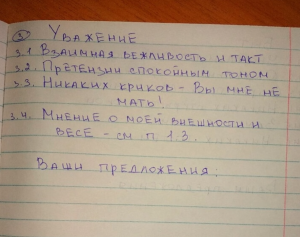 3 Уважение
3.1 Взаимная вежливость и такт
3.2 Претензии спокойным тоном
3.3. Никаких криков - Вы мне не
мать!
3.4. Мнение о моей внешности и
весе - см п. 1.3.
Ваши предложения.